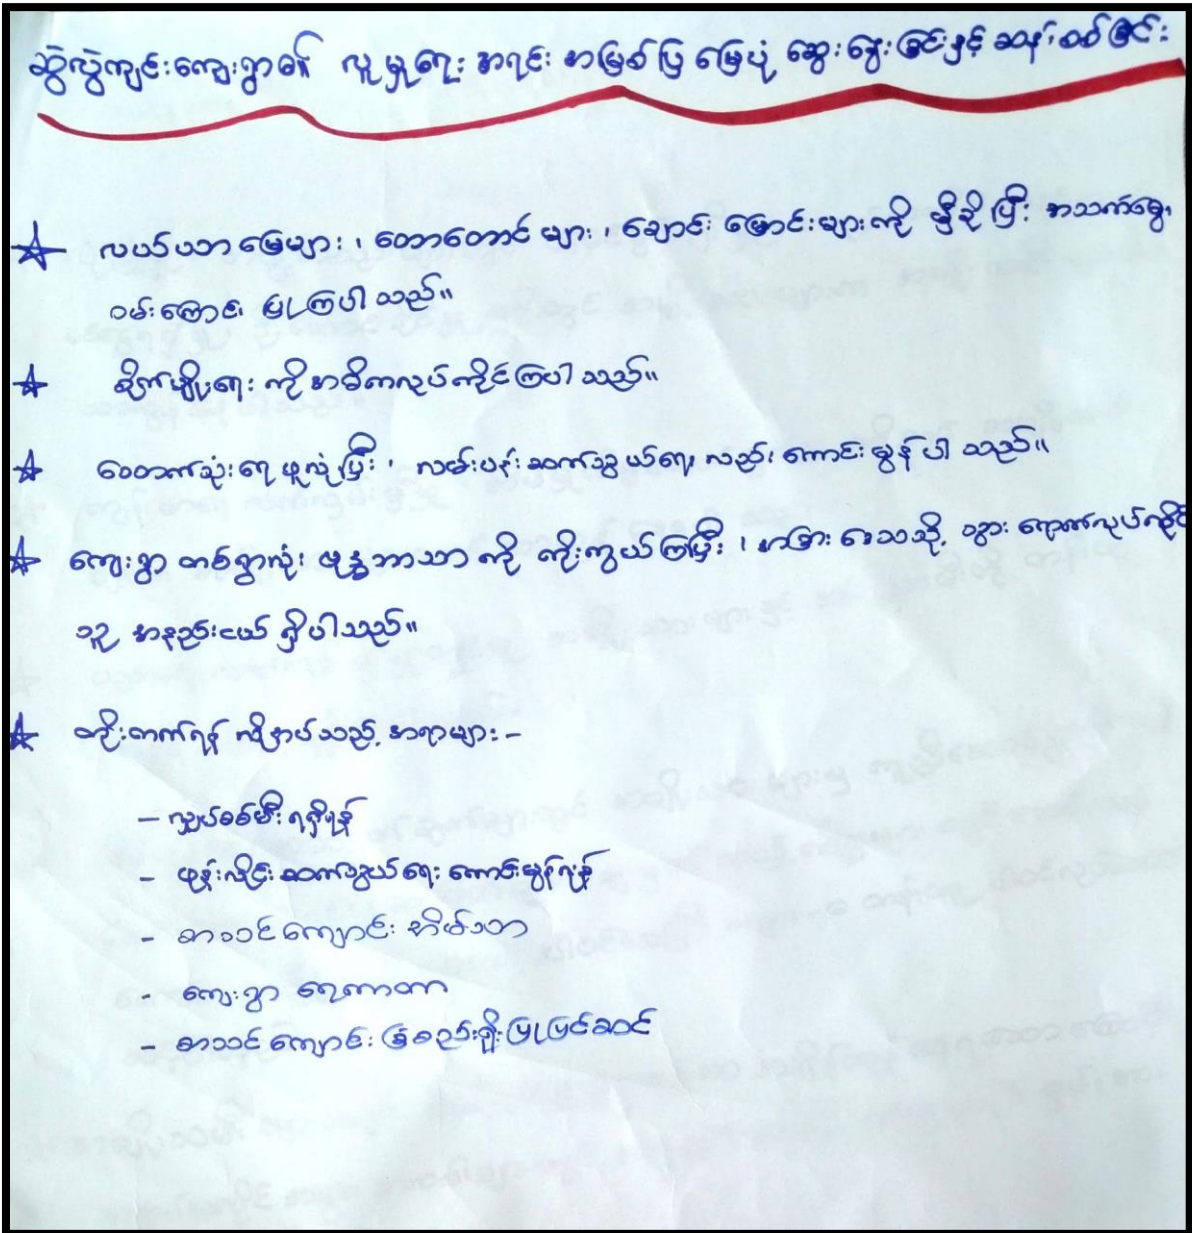 ဆွဲလွဲကျင်းကျေးရွာ၏ လူမှုရေး အရင်း အမြစ်ပြ မြေပုံ ဆွေးနွေးခြင်းနှင့် ဆန်းစစ်ခြင်း
လယ်ယာမြေများ ၊ တောတောင်များ ၊ ချောင်း မြောင်းများကို မှီခိုပြီး အသက်မွေး
ဝမ်းကြောင်း ပြုကြပါသည်။
စိုက်ပျိုးရေး ကို အဓိကလုပ်ကိုင်ကြပါသည်။
ဝေတာသုံးရေ ဖူလုံပြီး ၊ လမ်းပန်းဆက်သွယ်ရေး လည်း ကောင်းမွန်ပါသည်။
ကျေးရွာ တစ်ရွာလုံး ဗုဒ္ဓဘာသာ ကို ကိုးကွယ်ကြပြီး ၊ အခြား ဒေသသို့ သွား ရောက်လုပ်ကိုင်
သူ အနည်းငယ် ရှိပါသည်။
တိုးတက်ရန် လိုအပ်သည့် အရာများ -
- လျှပ်စစ်မီး ရရှိရန်
- ဖုန်းလိုင်း ဆက်သွယ်ရေး ကောင်းမွန်ရန်
- စာသင်ကျောင်း အိမ်သာ
- ကျေးရွာ ရေကာတာ
- စာသင်ကျောင်း ခြံစည်းရိုး ပြုပြင်ဆင်